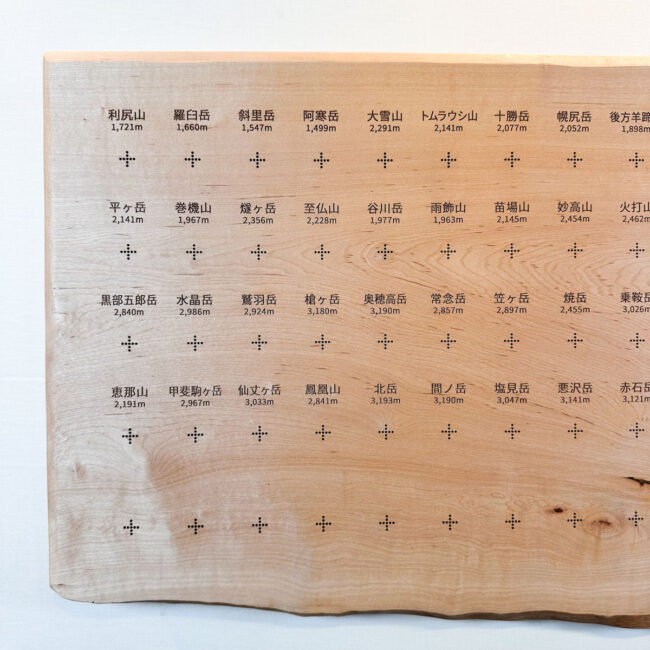 利尻山 羅臼岳 斜里岳 阿寒岳 大雪山 トムラウシ山 十勝岳 幌尻岳 後方羊蹄
1,721m 1,660m 1,547m 1,499m 2,291m 2,141m 2,077m 2,052m 1,898m
平ヶ岳 巻機山 燧ヶ岳 至仏山 谷川岳 雨飾山 苗場山 妙高山 火打山
2,141m 1,967m 2,356m 2,228m 1,977m 1,963m 2,145m 2,454m 2,462m
黒部五郎岳 水晶岳 鷲羽岳 槍ヶ岳 奥穂高岳 常念岳 笠ヶ岳 焼岳 乗鞍岳
2,840m 2,986m 2,924m 3,180m 3,190m 2,857m 2,897m 2,455m 3,026m
恵那山 甲斐駒ヶ岳 仙丈ヶ岳 鳳凰山 北岳 間ノ岳 塩見岳 悪沢岳 赤石岳
2,191m 2,967m 3,033m 2,841m 3,193m 3,190m 3,047m 3,141m 3,121m